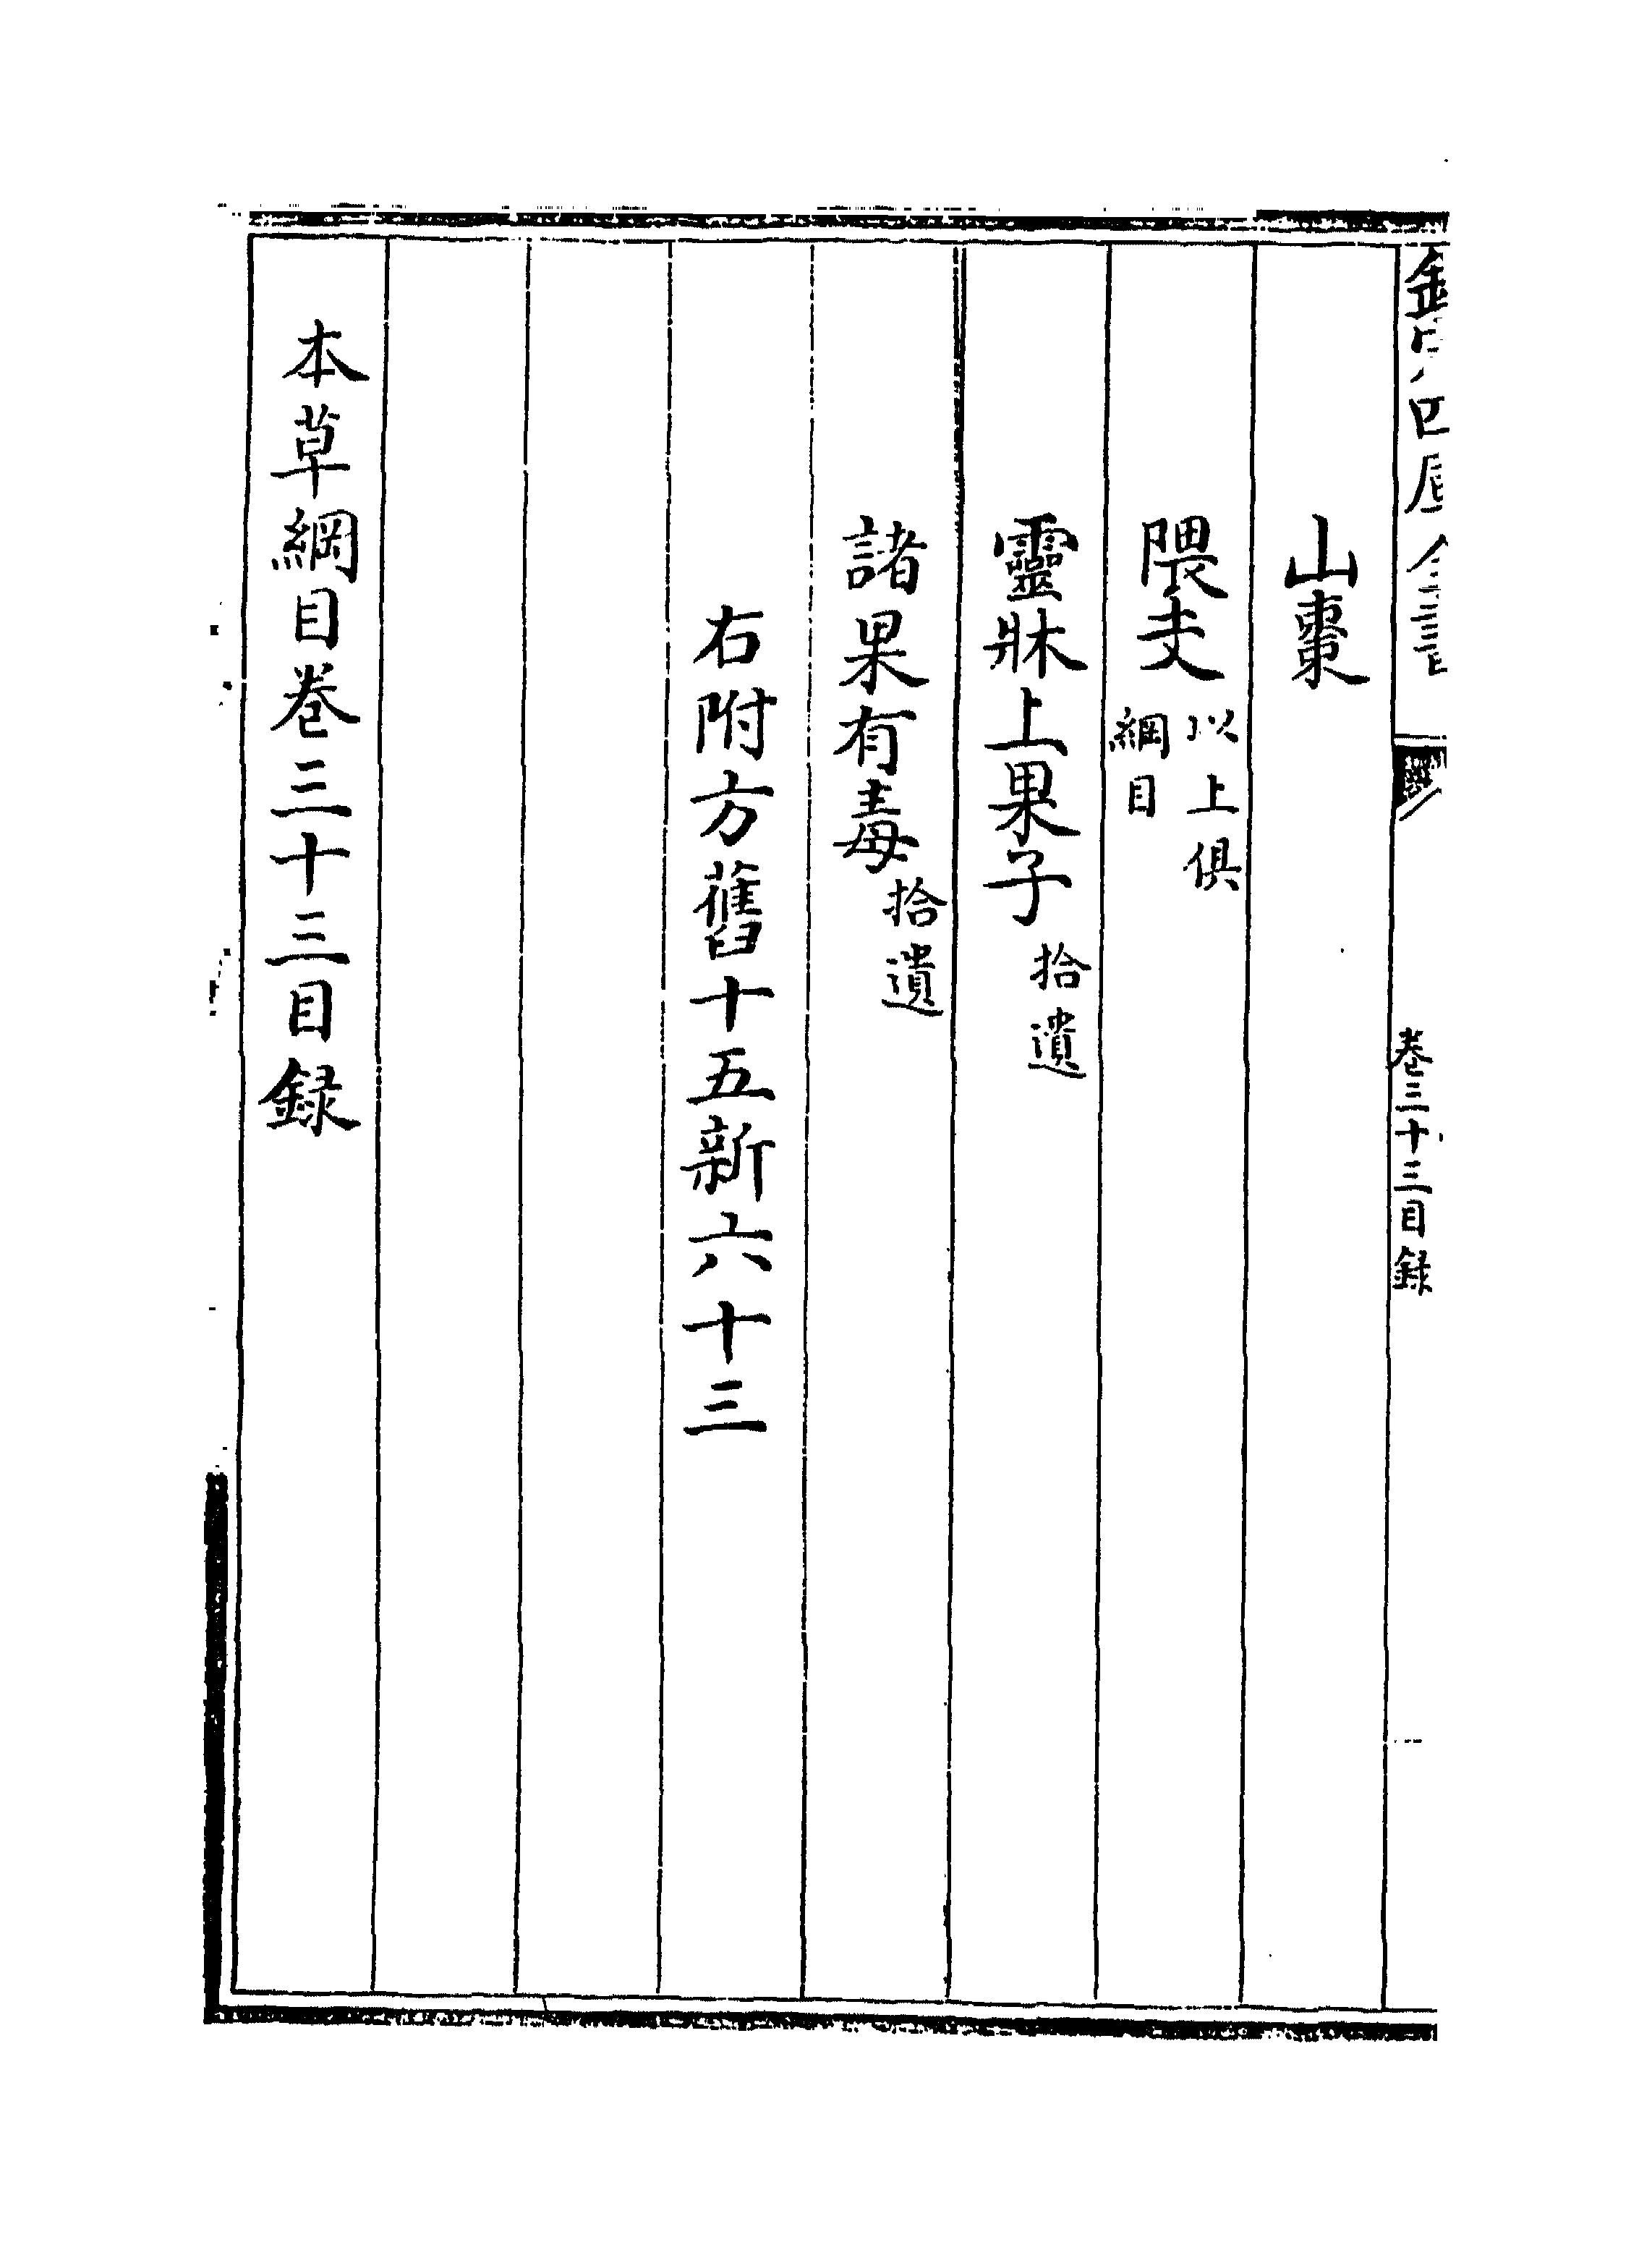 欽定四庫全書
卷三十三目錄
山棗
隈支以上俱
綱目
靈牀上果子拾遺
諸果有毒拾遺
右附方舊十五新六十三
本草綱目卷三十三目錄